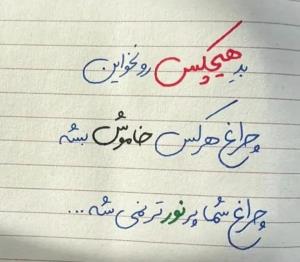 بدِ هیچکس رو نخواین
چراغ هرکس خاموش بشه
چراغ شما پر نور تر نمی شه...